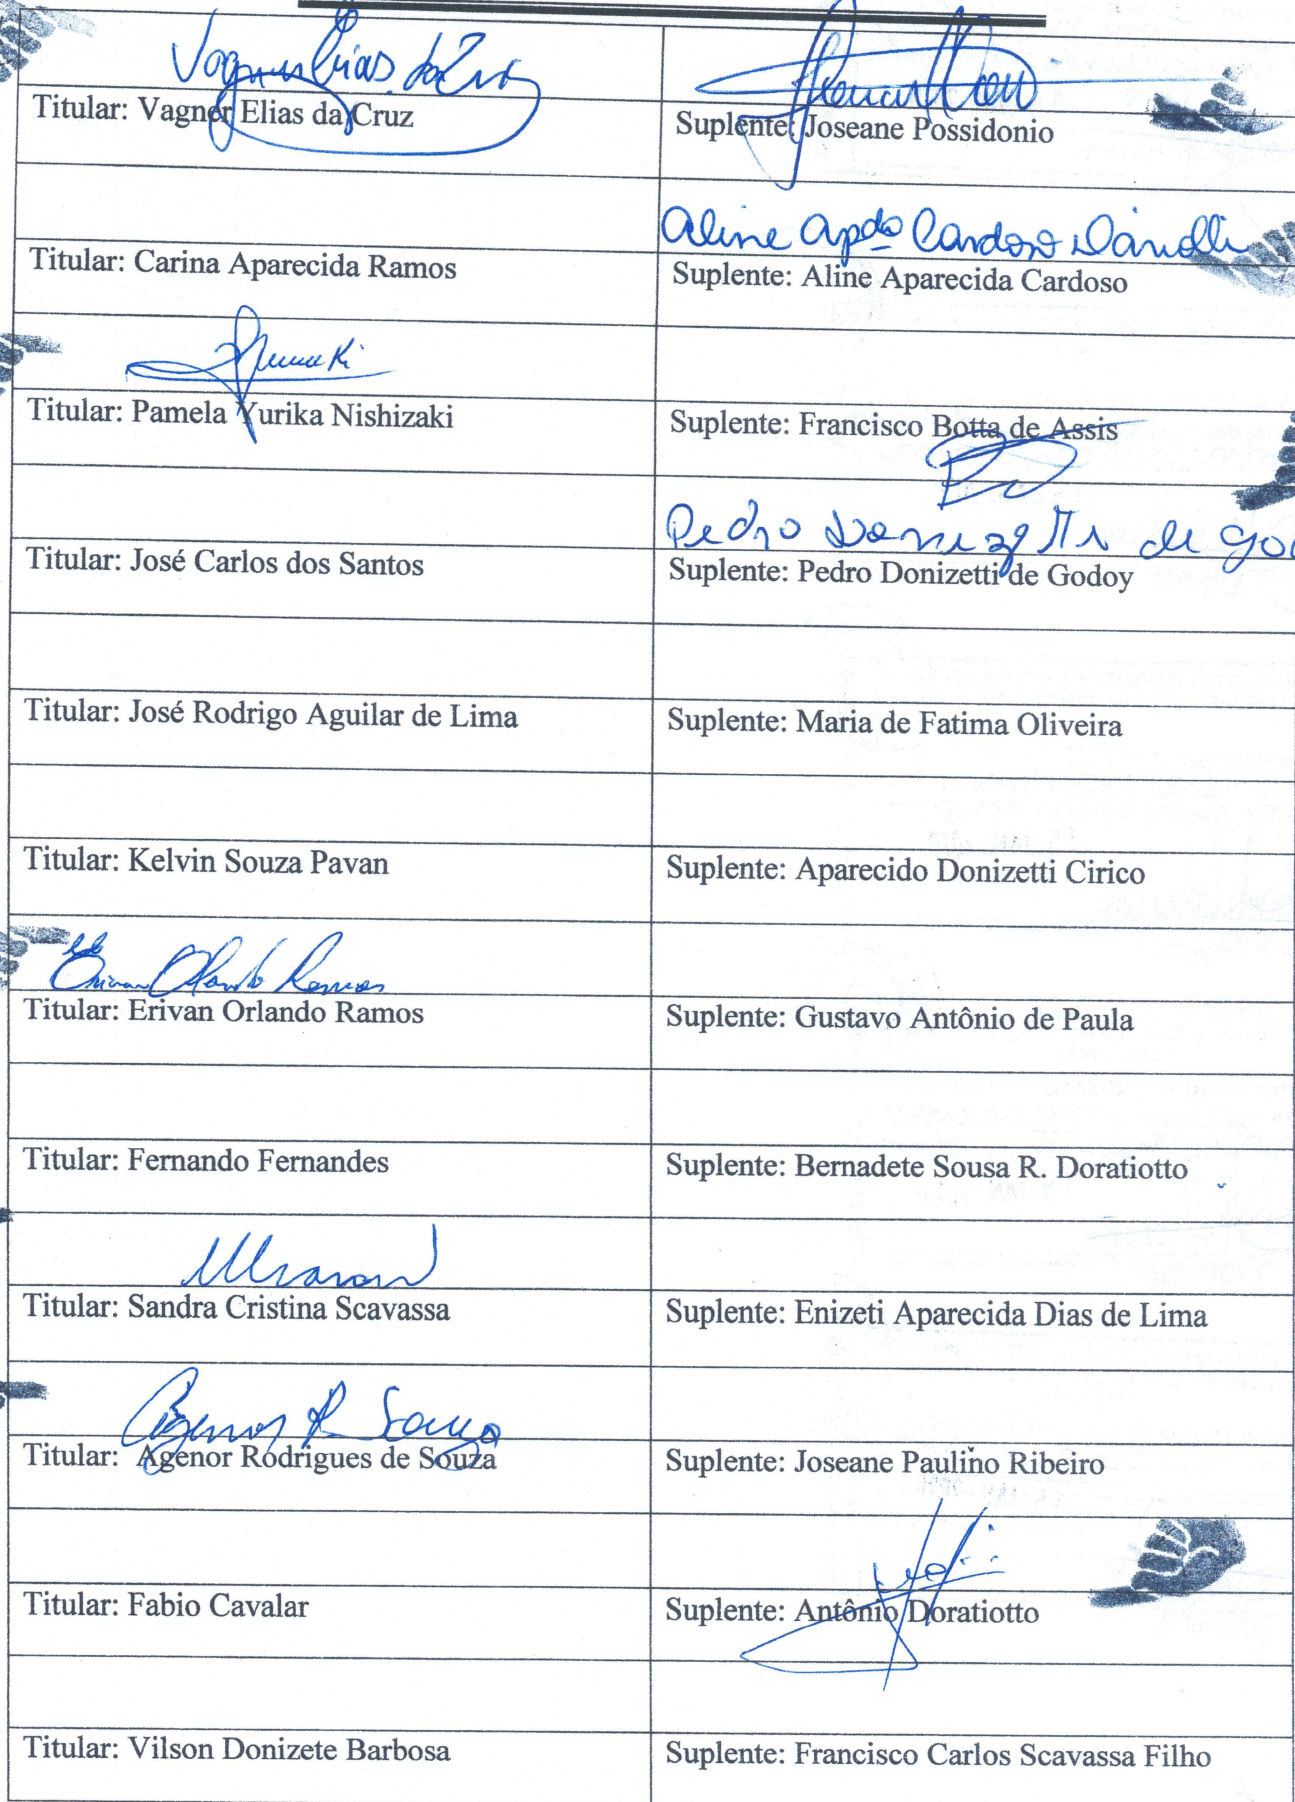 Vagner Elias da Cruz
Titular: Vagner Elias da Cruz
Suplente: Joseane Possidonio
Aline Apda Cardoso
Titular: Carina Aparecida Ramos
Suplente: Aline Aparecida Cardoso
Titular: Pamela Yurika Nishizaki
Suplente: Francisco Botta de Assis
Pedro Donizetti de Go
Titular: José Carlos dos Santos
Suplente: Pedro Donizetti de Godoy
Titular: José Rodrigo Aguilar de Lima
Suplente: Maria de Fatima Oliveira
Titular: Kelvin Souza Pavan
Suplente: Aparecido Donizetti Cirico
Erivan Orlando Ramos
Titular: Erivan Orlando Ramos
Suplente: Gustavo Antônio de Paula
Titular: Fernando Fernandes
Suplente: Bernadete Sousa R. Doratiotto
Titular: Sandra Cristina Scavassa
Suplente: Enizeti Aparecida Dias de Lima
Agenor R Souza
Titular: Agenor Rodrigues de Souza
Suplente: Joseane Paulino Ribeiro
Titular: Fabio Cavalar
Suplente: Antônio Doratiotto
Titular: Vilson Donizete Barbosa
Suplente: Francisco Carlos Scavassa Filho